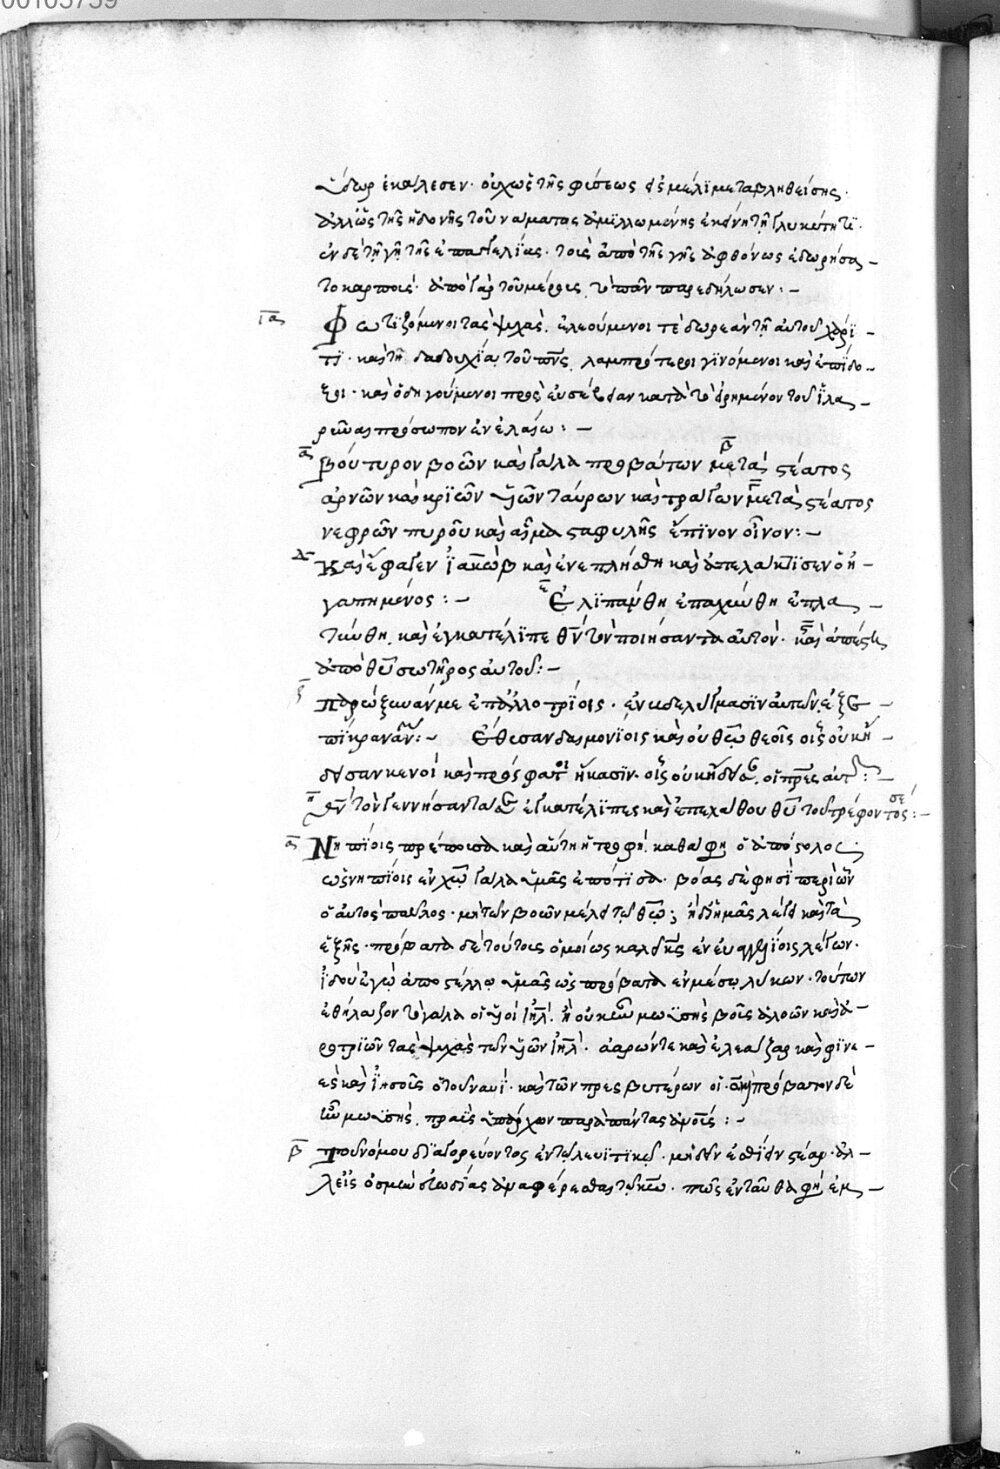 ὕδωρ ἐκάλεσεν· οὐχ ὡς τῆς φύσεως εἰς μέλι μεταβληθείσης·
ἀλλ' ὡς τῆς ἡδονῆς τοῦ νάματος ἁμιλλωμένης ἐκείνη τῇ γλυκύτητι·
ἐν δὲ τῇ γῇ τῆς ἐπαγγελίας· τοῖς ἀπὸ τῆς γῆς ἀφθόνως ἐδωρήσα
το καρποῖς· ἀπὸ γὰρ τοῦ μέρους τὸ πᾶν παρεδήλωσεν:
ια Φωτιζόμενοι τὰς ψυχὰς, ἐλεούμενοι τὲ δωρεὰν τῇ αὐτοῦ χάρι
τι· καὶ τῇ δαδουχία τοῦ πνς λαμπρότεροι γινόμενοι καὶ ἐπίδο
ξοι· καὶ ὁδηγούμενοι πρὸς εὐσέβειαν κατὰ τὸ εἰρημένον τοῦ ἱλα
ρῶσαι πρόσωπον ἐν ἐλαίω:
α Βούτυρον βοῶν καὶ γάλα προβάτων β μετὰ στέατος
ἀρνῶν καὶ κριῶν υἱῶν ταύρων καὶ τράγων γ μετὰ στέατος
νεφρῶν πυροῦ καὶ αἷμα σταφυλῆς ἔπινον οἶνον:
δ Καὶ ἔφαγεν ἰακὼβ καὶ ἐνεπλήσθη καὶ ἀπελάκτισεν ὁ ἠ
γαπημένος: ε Ἐλιπάνθη ἐπαχύνθη ἐπλα
τύνθη, καὶ ἐγκατέλιπε θν τὸν ποιήσαντα αὐτόν· καὶ ἀπέστη
ἀπὸ θυ σωτῆρος αὐτοῦ:
ζ Παρώξυνάν με ἐπ' ἀλλοτρίοις· ἐν βδελύγμασιν αὐτῶν ἐξε
πίκρανάν: Ἔθυσαν δαιμονίοις καὶ οὐ θῶ θεοῖς οἷς οὐκ ἤ
δεισαν κενοὶ καὶ πρόσφατοι ἥκασιν· οἷς οὐκ ᾔδεισαν οἱ πρες αὐτῶν:
η θν τὸν γεννήσαντά σε ἐγκατέλιπες καὶ ἐπελάθου θυ τοῦ τρέφοντός σε:
α Νηπίοις πρέπουσα καὶ αὕτη ἡ τροφή, καθά φη ὁ ἀπόστολος·
ὡς νηπίοις ἐν χῶ γάλα ὑμᾶς ἐπότισα· βόας δέ φησι περὶ ὧν
ὁ αὐτὸς παῦλος· μὴ τῶν βοῶν μέλει τῶ θῶ; ἢ δι' ἡμᾶς λέγει καὶ τὰ
ἑξῆς· πρόβατα δὲ τούτοις ὁμοίως καλεῖ ὁ κς ἐν εὐαγγελίοις λέγων·
ἰδοὺ ἐγὼ ἀποστέλλω ὑμᾶς ὡς πρόβατα ἐν μέσω λύκων· τούτων
ἐθήλαζον τὸ γάλα οἱ υἱοὶ ιηλ. ἢ οὐκ ἦν μωϋσῆς βοῦς ἀλοῶν καὶ ἀ
ροτριῶν τὰς ψυχὰς τῶν υἱῶν ιηλ· ἀαρών τε καὶ ἐλεάζαρ καὶ φινε
ὲς καὶ ἰησοῦς ὁ τοῦ ναυῒ· καὶ τῶν πρεσβυτέρων οἱ πρόβατον δὲ
ἦν μωϋσῆς, πραῢς ὑπάρχων παρὰ πάντας ἀνους:
β Τοῦ νόμου διαγορεύοντος ἐν τῶ λευϊτικῶ· μηδὲν ἐσθίειν στέαρ· ἀλ
λ' εἰς ὀσμὴν εὐωδίας ἀναφέρεσθαι τῶ κω· πῶς ἐνταῦθά φη, ἐκ